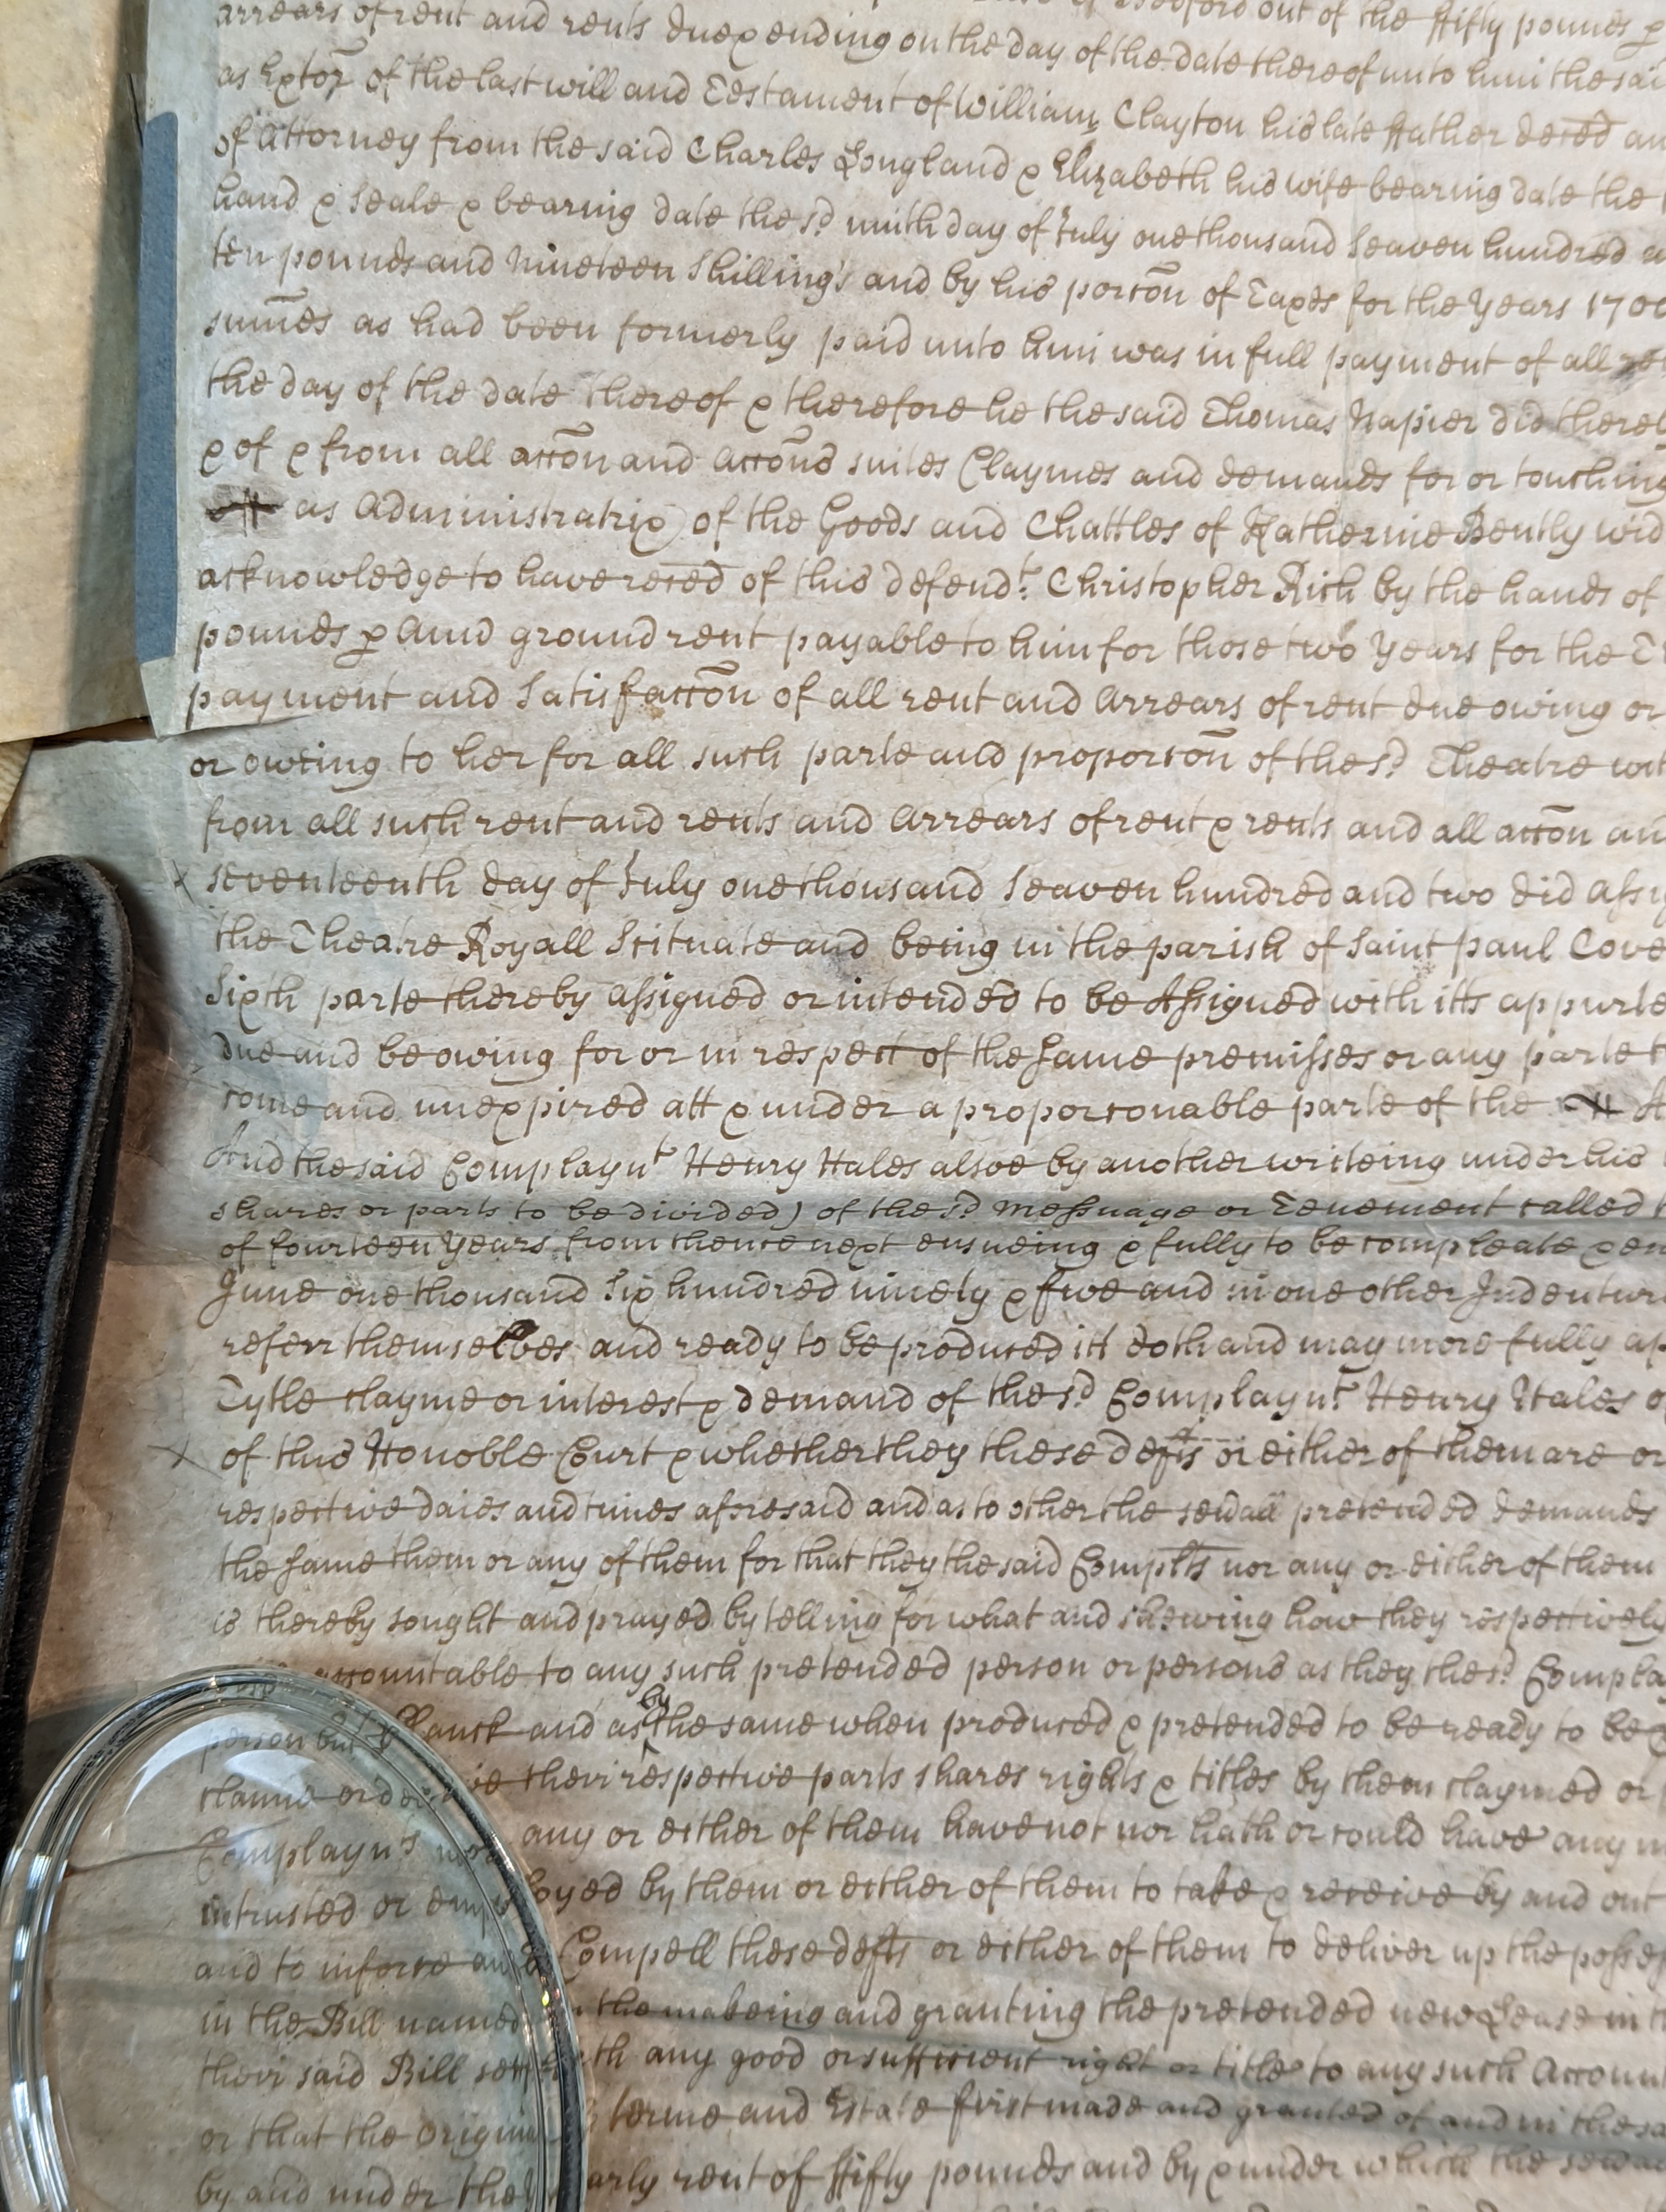 arrears of rent and rents due & ending on the day of the date thereof unto him the said
as Extor of the last will and Testament of William Clayton his late ffather deced an
of Attorney from the said Charles Longland & Elizabeth his wife bearing date the
hand & Seale & bearing date the sd ninth day of July one thousand Seaven hundred
ten pounds and Nineteen Shilling's and by his porcõn of Taxes for the Years 1700
sum̃es as had been formerly paid unto him was in full payment of all
the day of the date thereof & therefore he the said Thomas Napier did thereby
& of & from all accõn and accõns suites Claymes and demands for or touching
as Administratrix of the Goods and Chattles of Katherine Bently wid
acknowledge to have reced of this defendt Christopher Rich by the hands of
pounds p Annu ground rent payable to him for those two Years for the
payment and Satisfaccõn of all rent and Arrears of rent due owing or
or owing to her for all such parte and proporcõn of the sd Theatre wit
from all such rent and rents and Arrears of rent & rents and all accõn an
seventeenth day of July one thousand Seaven hundred and two did assig
the Theatre Royall Scituate and being in the parish of Saint paul Cove
Sixth parte thereby assigned or intended to be Assigned with itts appurte
due and be owing for or in respect of the same premisses or any parte
come and unexpired att & under a proporconable parte of the
And the said Complaynt Henry Hales alsoe by another writeing under his
shares or parts to be divided) of the sd Messuage or Tenement called
of fourteen Years from thence next ensueing & fully to be compleate & en
June one thousand Six hundred ninety & five and in one other Indenture
referr themselves and ready to be produced itt doth and may more fully ap
Tytle clayme or interest & demand of the sd Complaynt Henry Hales
of this Honoble Court & whether they these defts or either of them are or
respective daies and times aforesaid and as to other the sevall pretended demands
the same them or any of them for that they the said Complts nor any or either of them
is thereby sought and prayed by telling for what and shewing how they respectively
accountable to any such pretended person or persons as they the sd Compla
person but Blanck and as by the same when produced & pretended to be ready to be
claime or derive their respective parts shares rights & titles by them claymed or
Complaynts nor any or either of them have not nor hath or could have any
intrusted or employed by them or either of them to take & receive by and out
and to inforce and Compell these defts or either of them to deliver up the posses
in the Bill named in the makeing and granting the pretended new Lease in
their said Bill sett forth any good or sufficient right or title to any such Account
or that the Origin terme and Estate first made and granted of and in the sa
by and under the yearly rent of ffifty pounds and by & under which the sevall